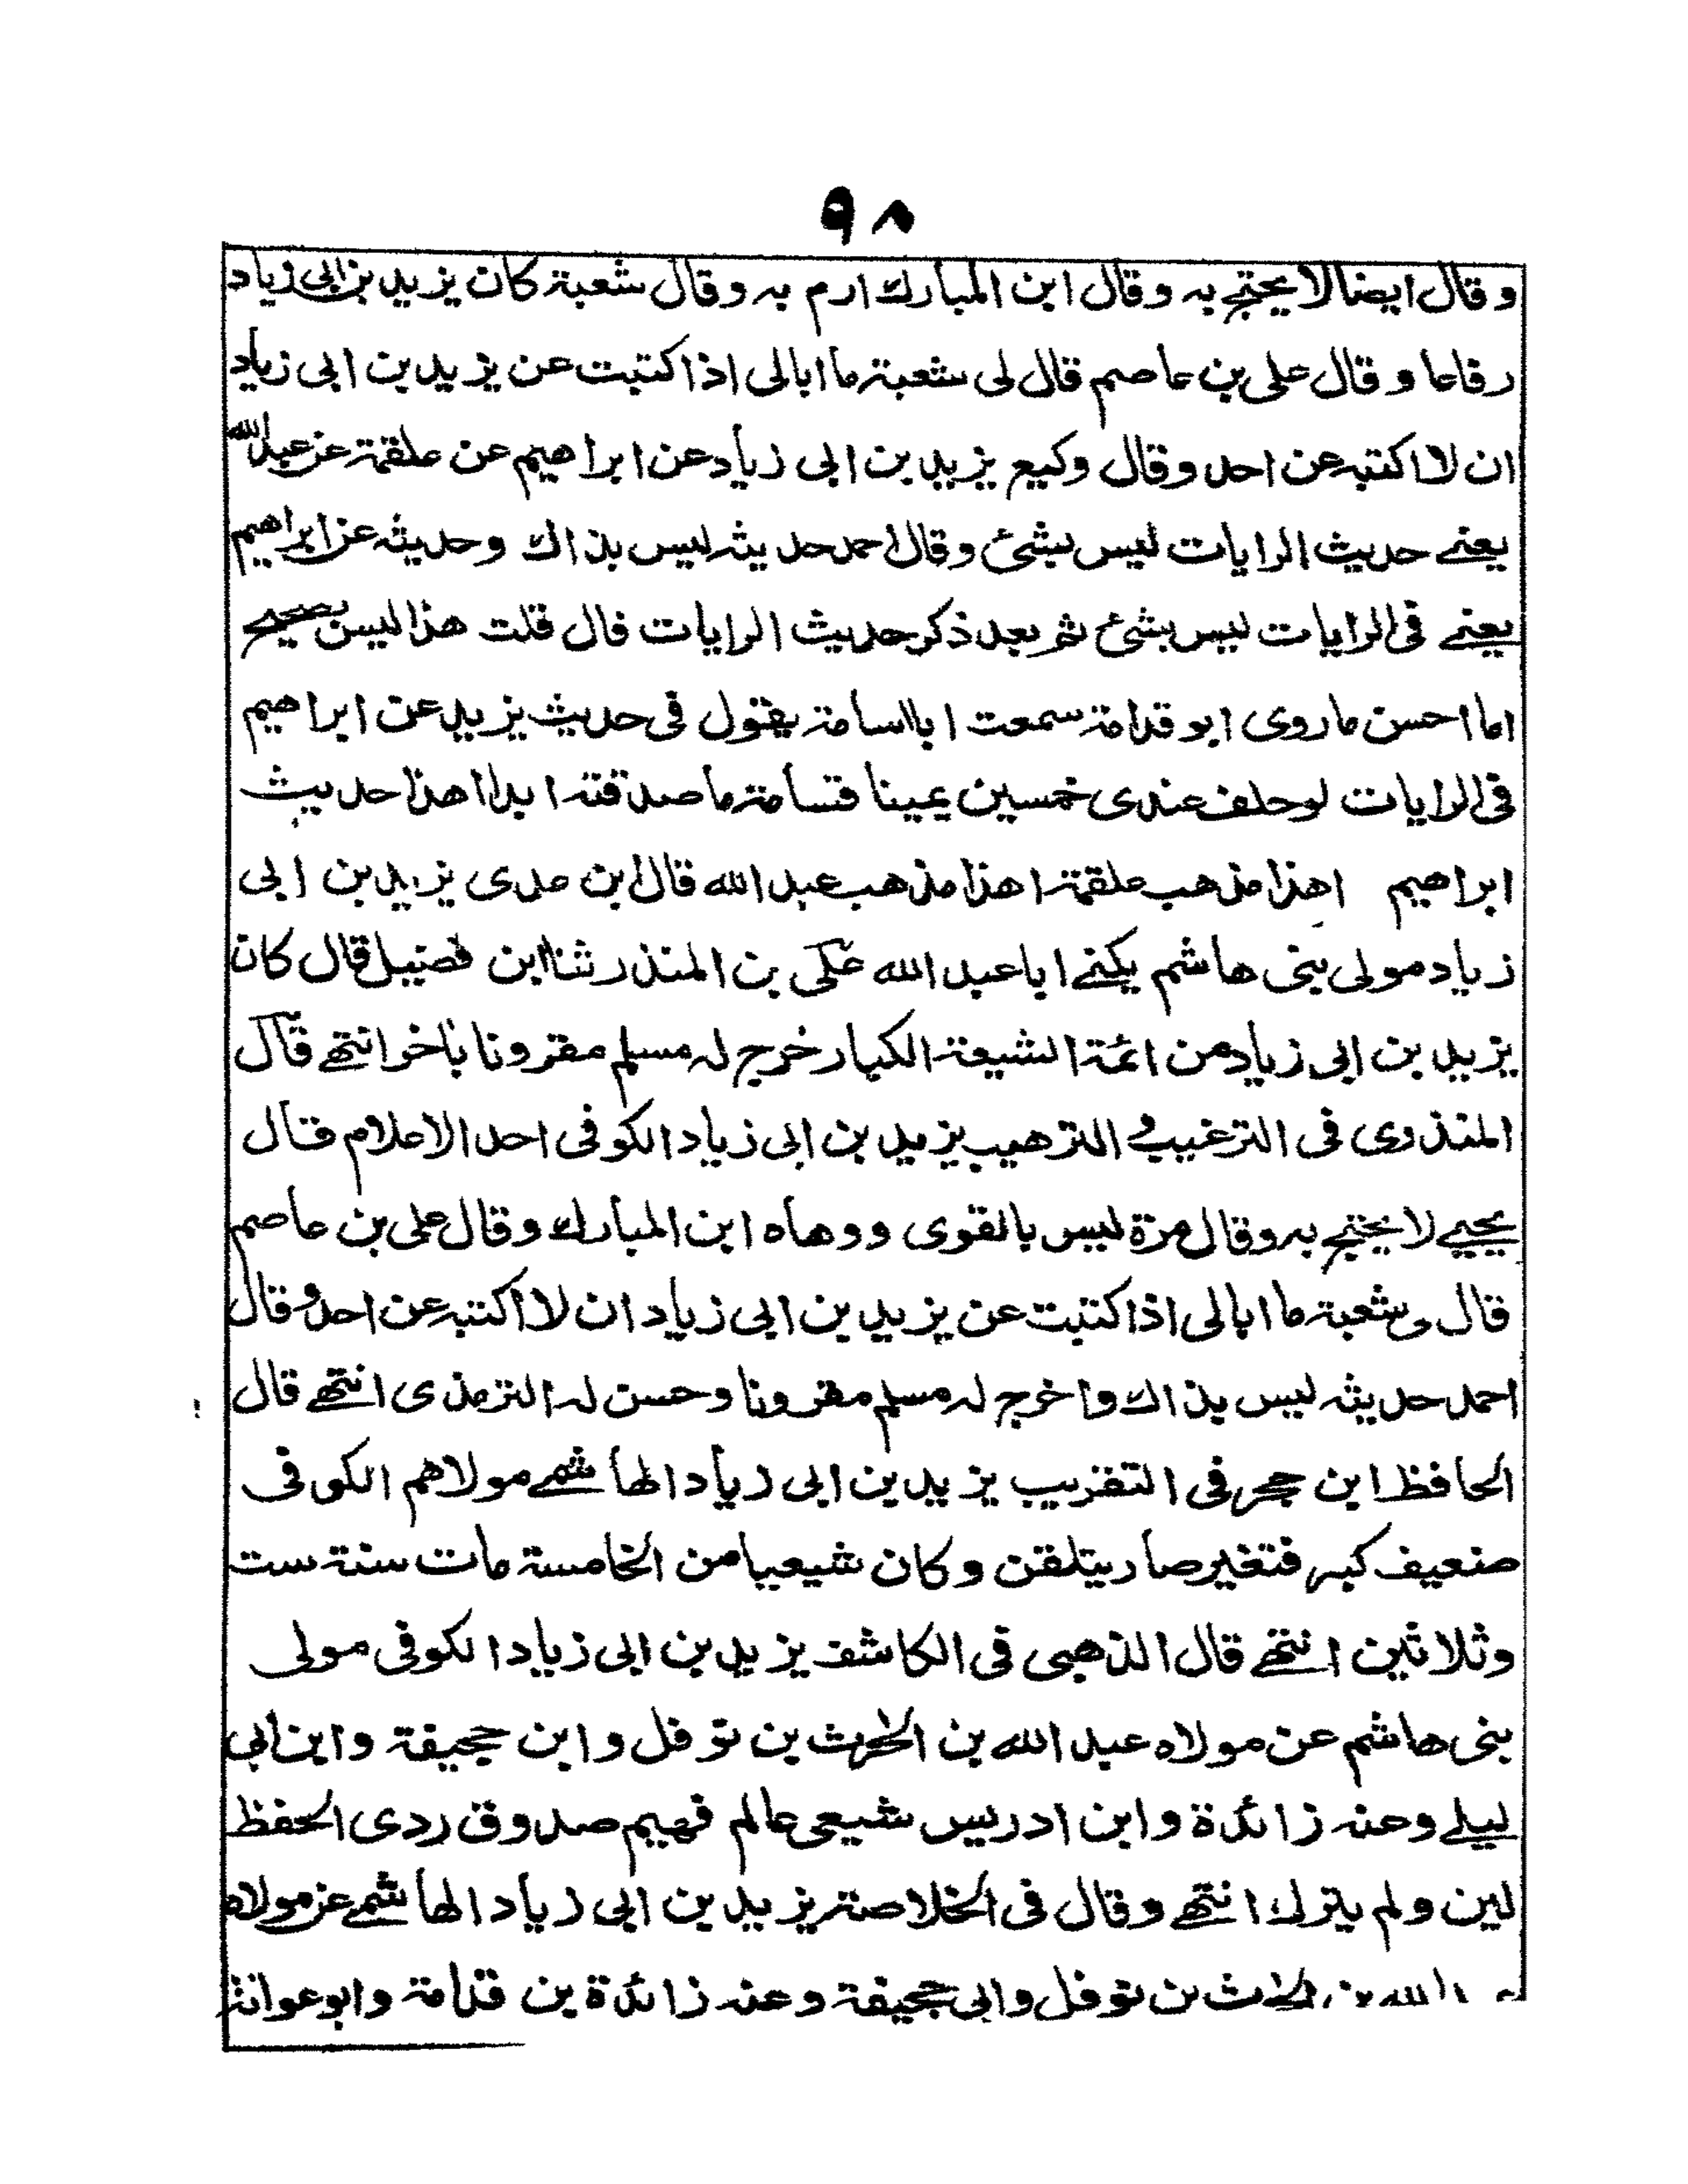 ۹۸
وقال ايضا لا يحتج به وقال ابن المبارك ارم به وقال شعبة كان يزيد بن ابى زياد
رفاعا وقال على بن عاصم قال لى شعبة ما ابالى اذا كتبت عن يزيد بن ابى زياد
ان لا اكتبه عن احد وقال وكيع يزيد بن ابى زياد عن ابراهيم عن علقمة عن عبد الله
يعنے حديث الرايات ليس بشئ وقال احمد حديثه ليس بذاك وحديثه عن ابراهيم
يعنے فى الرايات ليس بشئ ثم بعد ذكر حديث الرايات قال قلت هذا ليس بصحيح
اما احسن ما روى ابو قدامة سمعت ابا اسامة يقول فى حديث يزيد عن ابراهيم
فى الرايات لو حلف عندى خمسين يمينا قسامة ما صدقته ابدا اهذا حديث
ابراهيم اهذا مذهب علقمة اهذا مذهب عبد الله قال ابن عدى يزيد بن ابى
زياد مولى بنى هاشم يكنے ابا عبد الله على بن المنذر ثنا ابن فضيل قال كان
يزيد بن ابى زياد من ائمة الشيعة الكبار خرج له مسلم مقرونا باخر انتهے قال
المنذرى فى الترغيب و الترهيب يزيد بن ابى زياد الكوفى احد الاعلام قال
يحيے لا يحتج به وقال مرة ليس بالقوى ووهاه ابن المبارك وقال على بن عاصم
قال لى شعبة ما ابالى اذا كتبت عن يزيد بن ابى زياد ان لا اكتبه عن احد وقال
احمد حديثه ليس بذاك واخرج له مسلم مقرونا وحسن له الترمذى انتهے قال
الحافظ ابن حجر فى التقريب يزيد بن ابى زياد الهاشمے مولاهم الكوفى
ضعيف كبر فتغير صار يتلقن وكان شيعيا من الخامسة مات سنة ست
وثلاثين انتهے قال الذهبى فى الكاشف يزيد بن ابى زياد الكوفى مولى
بنى هاشم عن مولاه عبد الله بن الحرث بن نوفل وابن جحيفة وابن ابى
ليلے وعنه زائدة وابن ادريس شيعى عالم فهيم صدوق ردى الحفظ
لين ولم يترك انتهے وقال فى الخلاصة يزيد بن ابى زياد الهاشمے عن مولاه
الله بن الحرث بن نوفل وابى جحيفة وعنه زائدة بن قدامة وابو عوانة